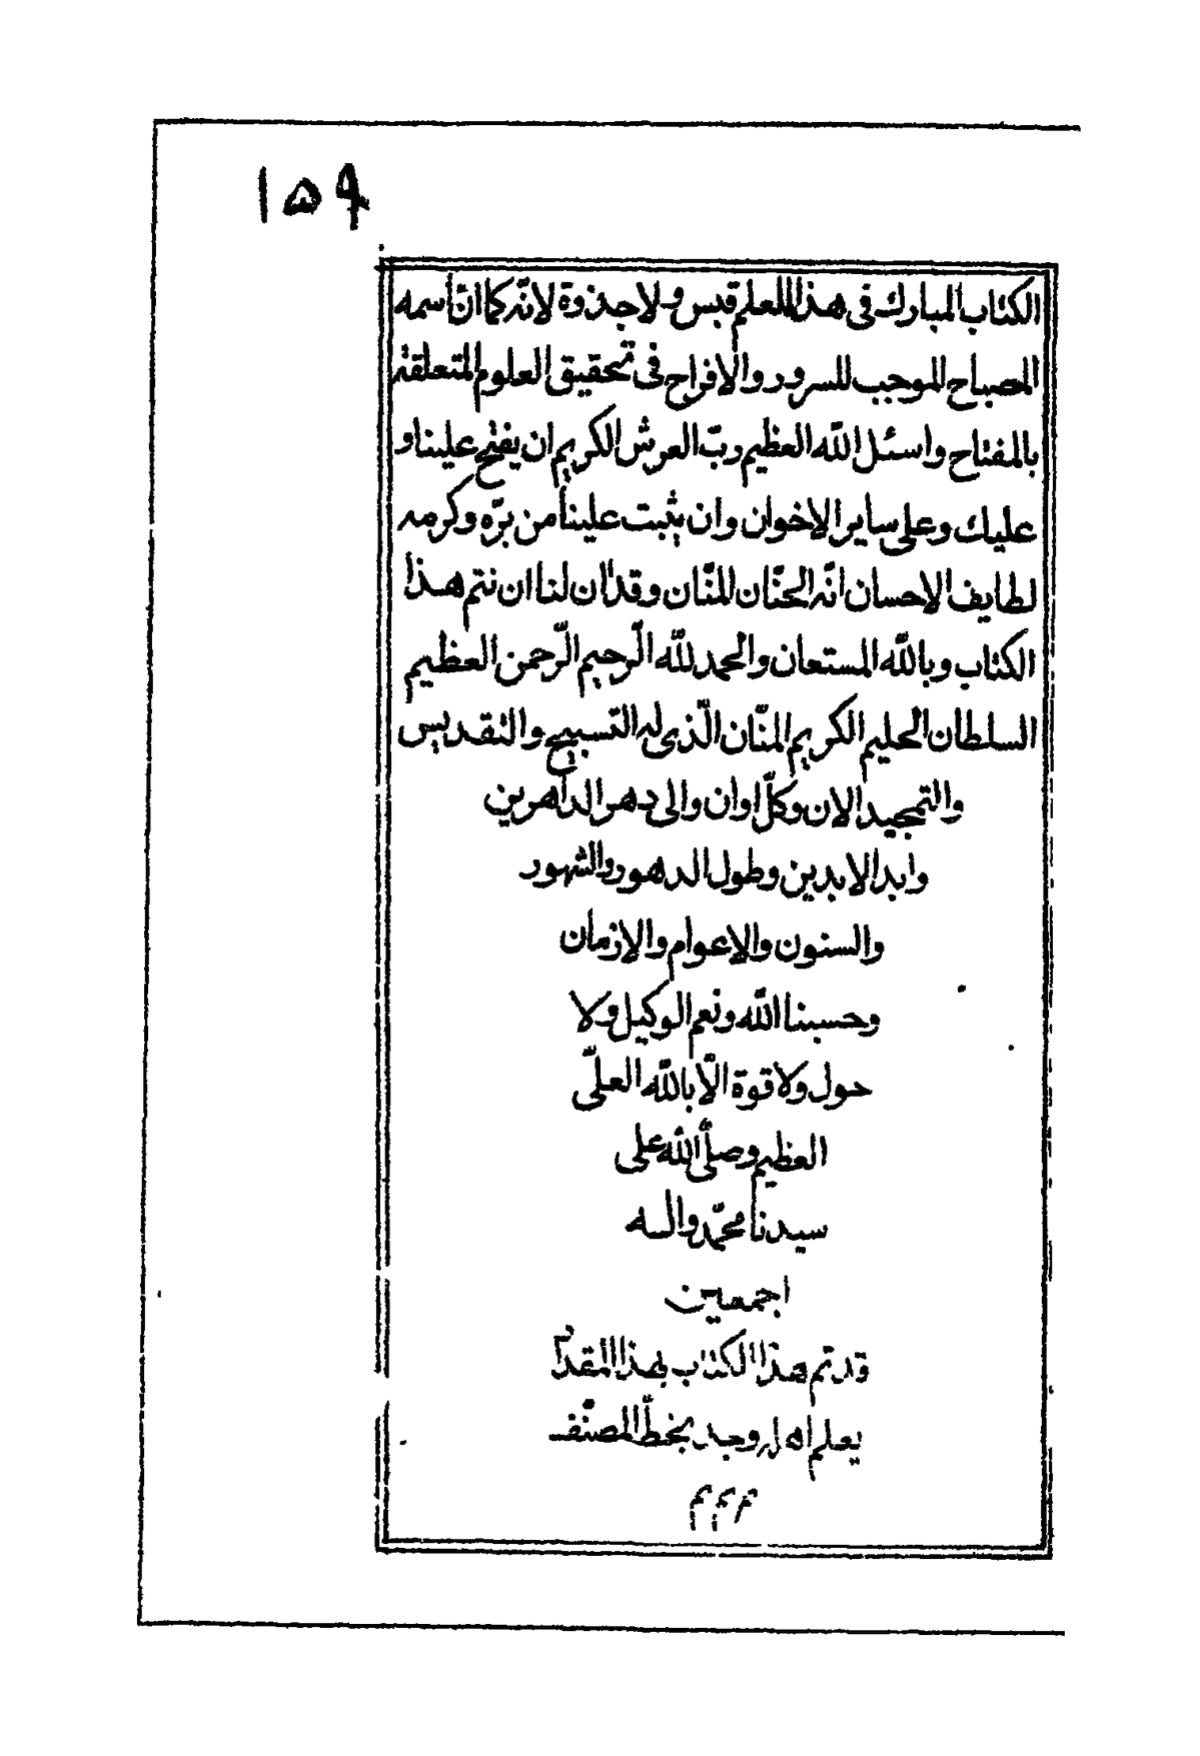 ۱۵۴
الكتاب المبارك فى هذا العلم قبس ولا جذوة لانّه كما ان اسمه
المصباح الموجب للسرور والافراح فى تحقيق العلوم المتعلقة
بالمفتاح واسئل اللّه العظيم ربّ العرش الكريم ان يفتح علينا و
عليك وعلى ساير الاخوان وان يثبت علينا من برّه وكرمه
لطايف الاحسان انّه الحنّان المنّان وقد ان لنا ان نتم هذا
الكتاب وباللّه المستعان والحمد للّه الرّحيم الرّحمن العظيم
السلطان الحليم الكريم المنّان الّذى له التسبيح والتقديس
والتمجيد الان وكلّ اوان والى دهر الداهرين
وابد الابدين وطول الدهور والشهور
والسنون والاعوام والازمان
وحسبنا اللّه ونعم الوكيل ولا
حول ولا قوة الّا باللّه العلّى
العظيم وصلّى اللّه على
سيدنا محمّد واله
اجمعين
قد تم هذا الكتاب بهذا المقدار
يعلم اهل وجد بخطّ المصنّف
م م م